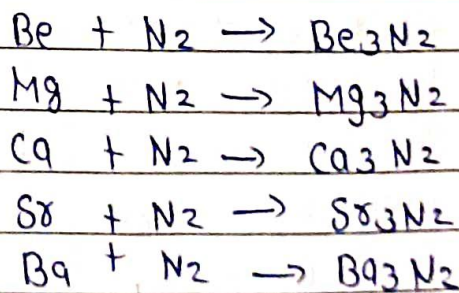 Be + N2 → Be3N2
Mg + N2 → Mg3N2
Ca + N2 → Ca3N2
Sr + N2 → Sr3N2
Ba + N2 → Ba3N2